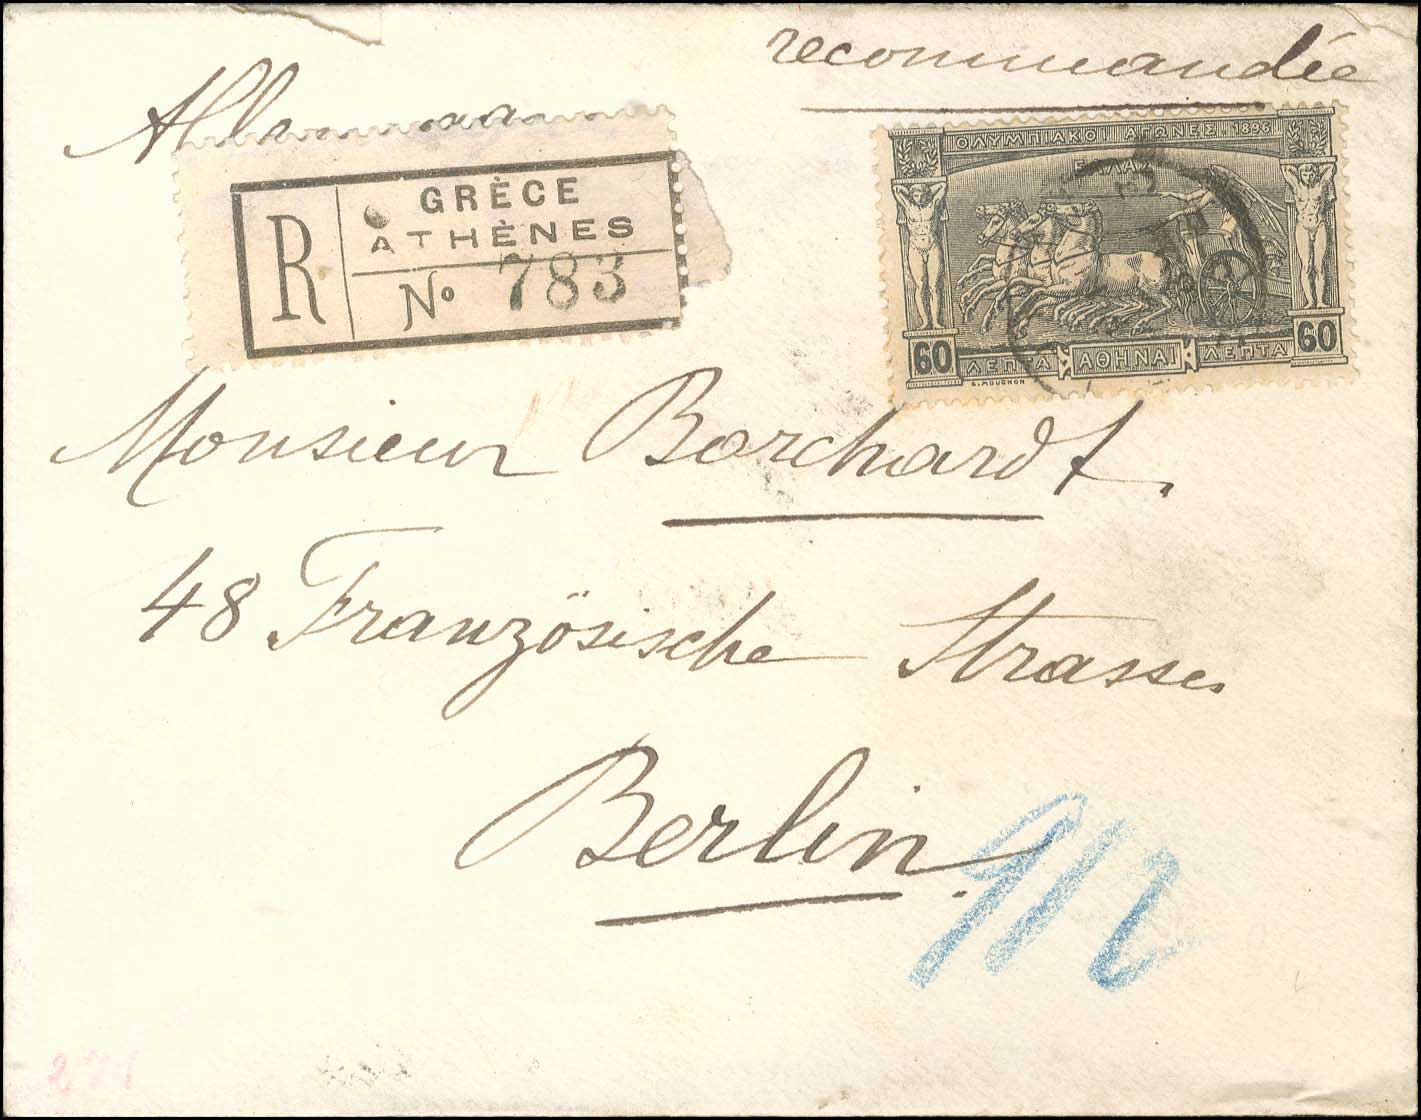 recommandée
GRÈCE
ATHÈNES
R
No 783
ΟΛΥΜΠΙΑΚΟΙ ΑΓΩΝΕΣ 1896
ΕΛΛΑΣ
60 ΛΕΠΤΑ ΑΘΗΝΑΙ ΛΕΠΤΑ 60
E. MOUCHON
Monsieur Borchardt.
48 Französische Strasse.
Berlin.
271